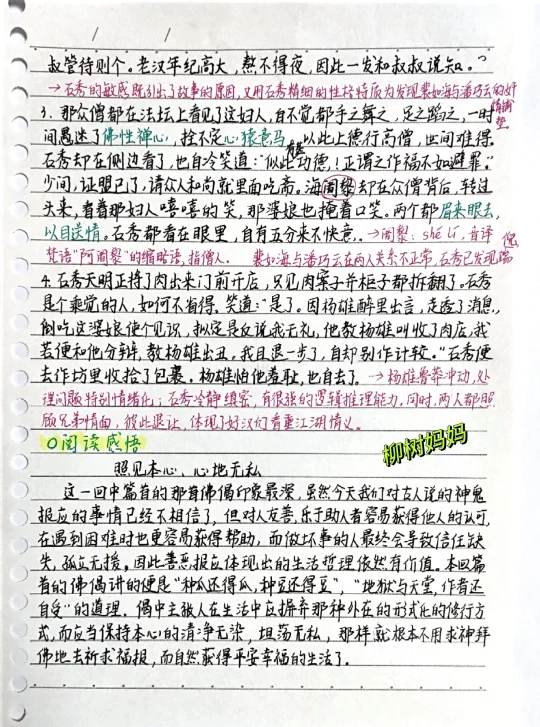 叔管待则个。老汉年纪高大,熬不得夜,因此一发和叔叔说知。”
→石秀的敏感既引出了故事的原因,又用石秀精细的性格特质为发现裴如海与潘巧云的奸情铺垫
3. 那众僧都在法坛上看见了这妇人,自不觉都手之舞之,足之蹈之,一时
间愚迷了佛性禅心,拴不定心猿意马,以此上德行高僧,世间难得。
石秀却在侧边看了,也自冷笑道:“似此有甚功德!正谓之作福不如避罪。”
少间,证盟已了,请众人和尚就里面吃斋。海阇黎却在众僧背后,转过
头来,看着那妇人嘻嘻的笑,那婆娘也掩着口笑。两个都眉来眼去,
以目送情。石秀都看在眼里,自有五分来不快意。→阇黎:shé lí,音译
梵语“阿阇黎”的缩略语,指僧人。 裴如海与潘巧云在两人关系不正常,石秀已发现
4. 石秀天明正将了肉出来门前开店,只见肉案子并柜子都拆翻了。石秀
是个乖觉的人,如何不省得,笑道:“是了。因杨雄醉里出言,走透了消息,
倒吃这婆娘使个见识,拟定是反说我无礼,他教杨雄叫收了肉店,我
若便和他分辩,教杨雄出丑。我且退一步了,自却别作计较。”石秀便
去作坊里收拾了包裹。杨雄怕他羞耻,也自去了。→杨雄鲁莽冲动,处
理问题特别情绪化;石秀冷静缜密,有很强的逻辑推理能力,同时,两人都照
顾兄弟情面,彼此退让,体现了好汉们看重江湖情义。
○阅读感悟
柳树妈妈
照见本心、心地无私
这一回中篇首的那首佛偈印象最深,虽然今天我们对古人说的神鬼
报应的事情已经不相信了,但对人友善,乐于助人者容易获得他人的认可,
在遇到困难时也更容易获得帮助,而做坏事的人最终会导致信任缺
失,孤立无援。因此善恶报应体现出的生活哲理依然有价值。本回篇
首的佛偈讲的便是“种瓜还得瓜,种豆还得豆”,“地狱与天堂,作者还
自受”的道理。偈中主张人在生活中应摒弃那种外在的形式化的修行方
式,而应当保持本心的清净无染,坦荡无私,那样就根本不用求神拜
佛地去祈求福报,而自然获得平安幸福的生活了.